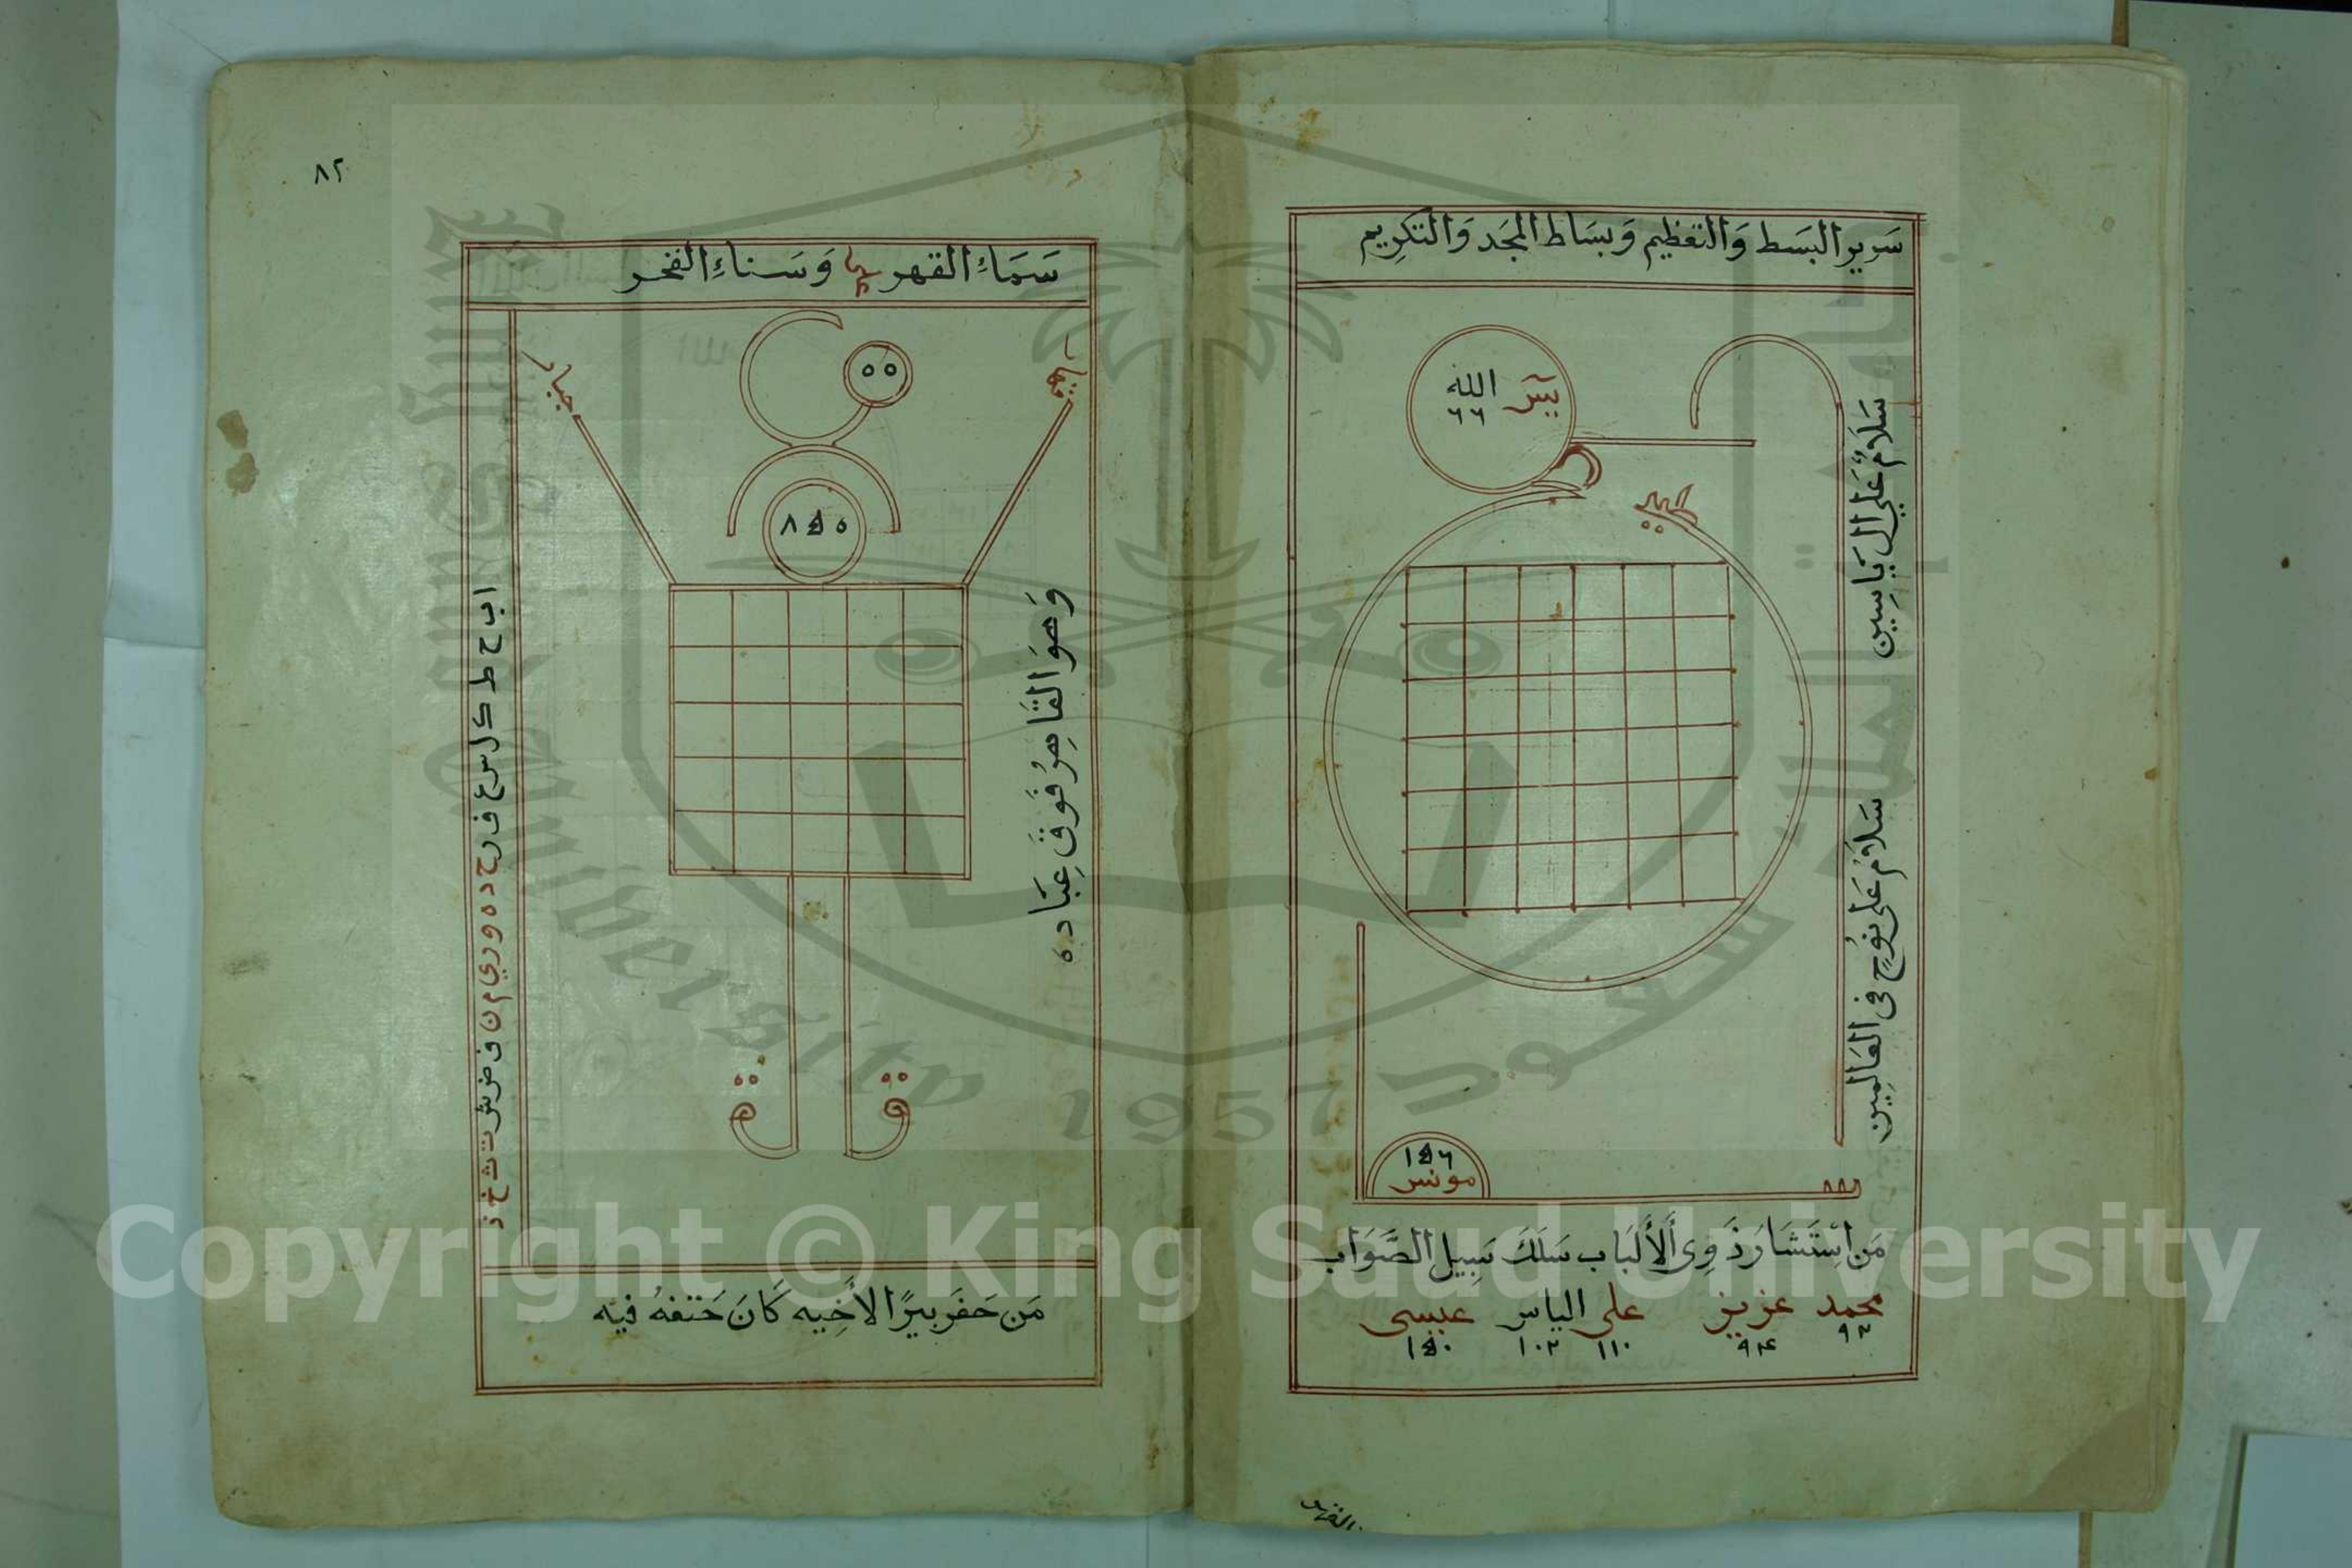 سَرِير البَسَط وَالتعَظِيم وَبسَاط المجَد وَالتكرِيم
الله
٦٦
سَلَامٌ عَلَى ال يَاسِين
سَلَامٌ عَلَى نوُحٍ فى العَالمِين
١٥٦
مونس
مَن اسْتَشَارَ ذَوِى الأَلبَاب سَلَكَ سَبِيل الصَّوَاب
محمد عزيز على الياس عيسى
٩٢ ٩٤ ١١٠ ١٠٢ ١٥٠
٨٢
سَمَاءِ القهر وَسَناءِ الفخر
٥٥
٨٥٥
جبار
وَهوَ القَاهِرُ فَوقَ عِبَاده
ا ب ح ط ك ل س ع ف ر ح د ه و ر ي م ن ف ض ش ت ث خ ذ
مَن حَفَر بيرًا لأَخِيه كَانَ حَتفهُ فيه
Copyright © King Saud University
King Saud University
1957